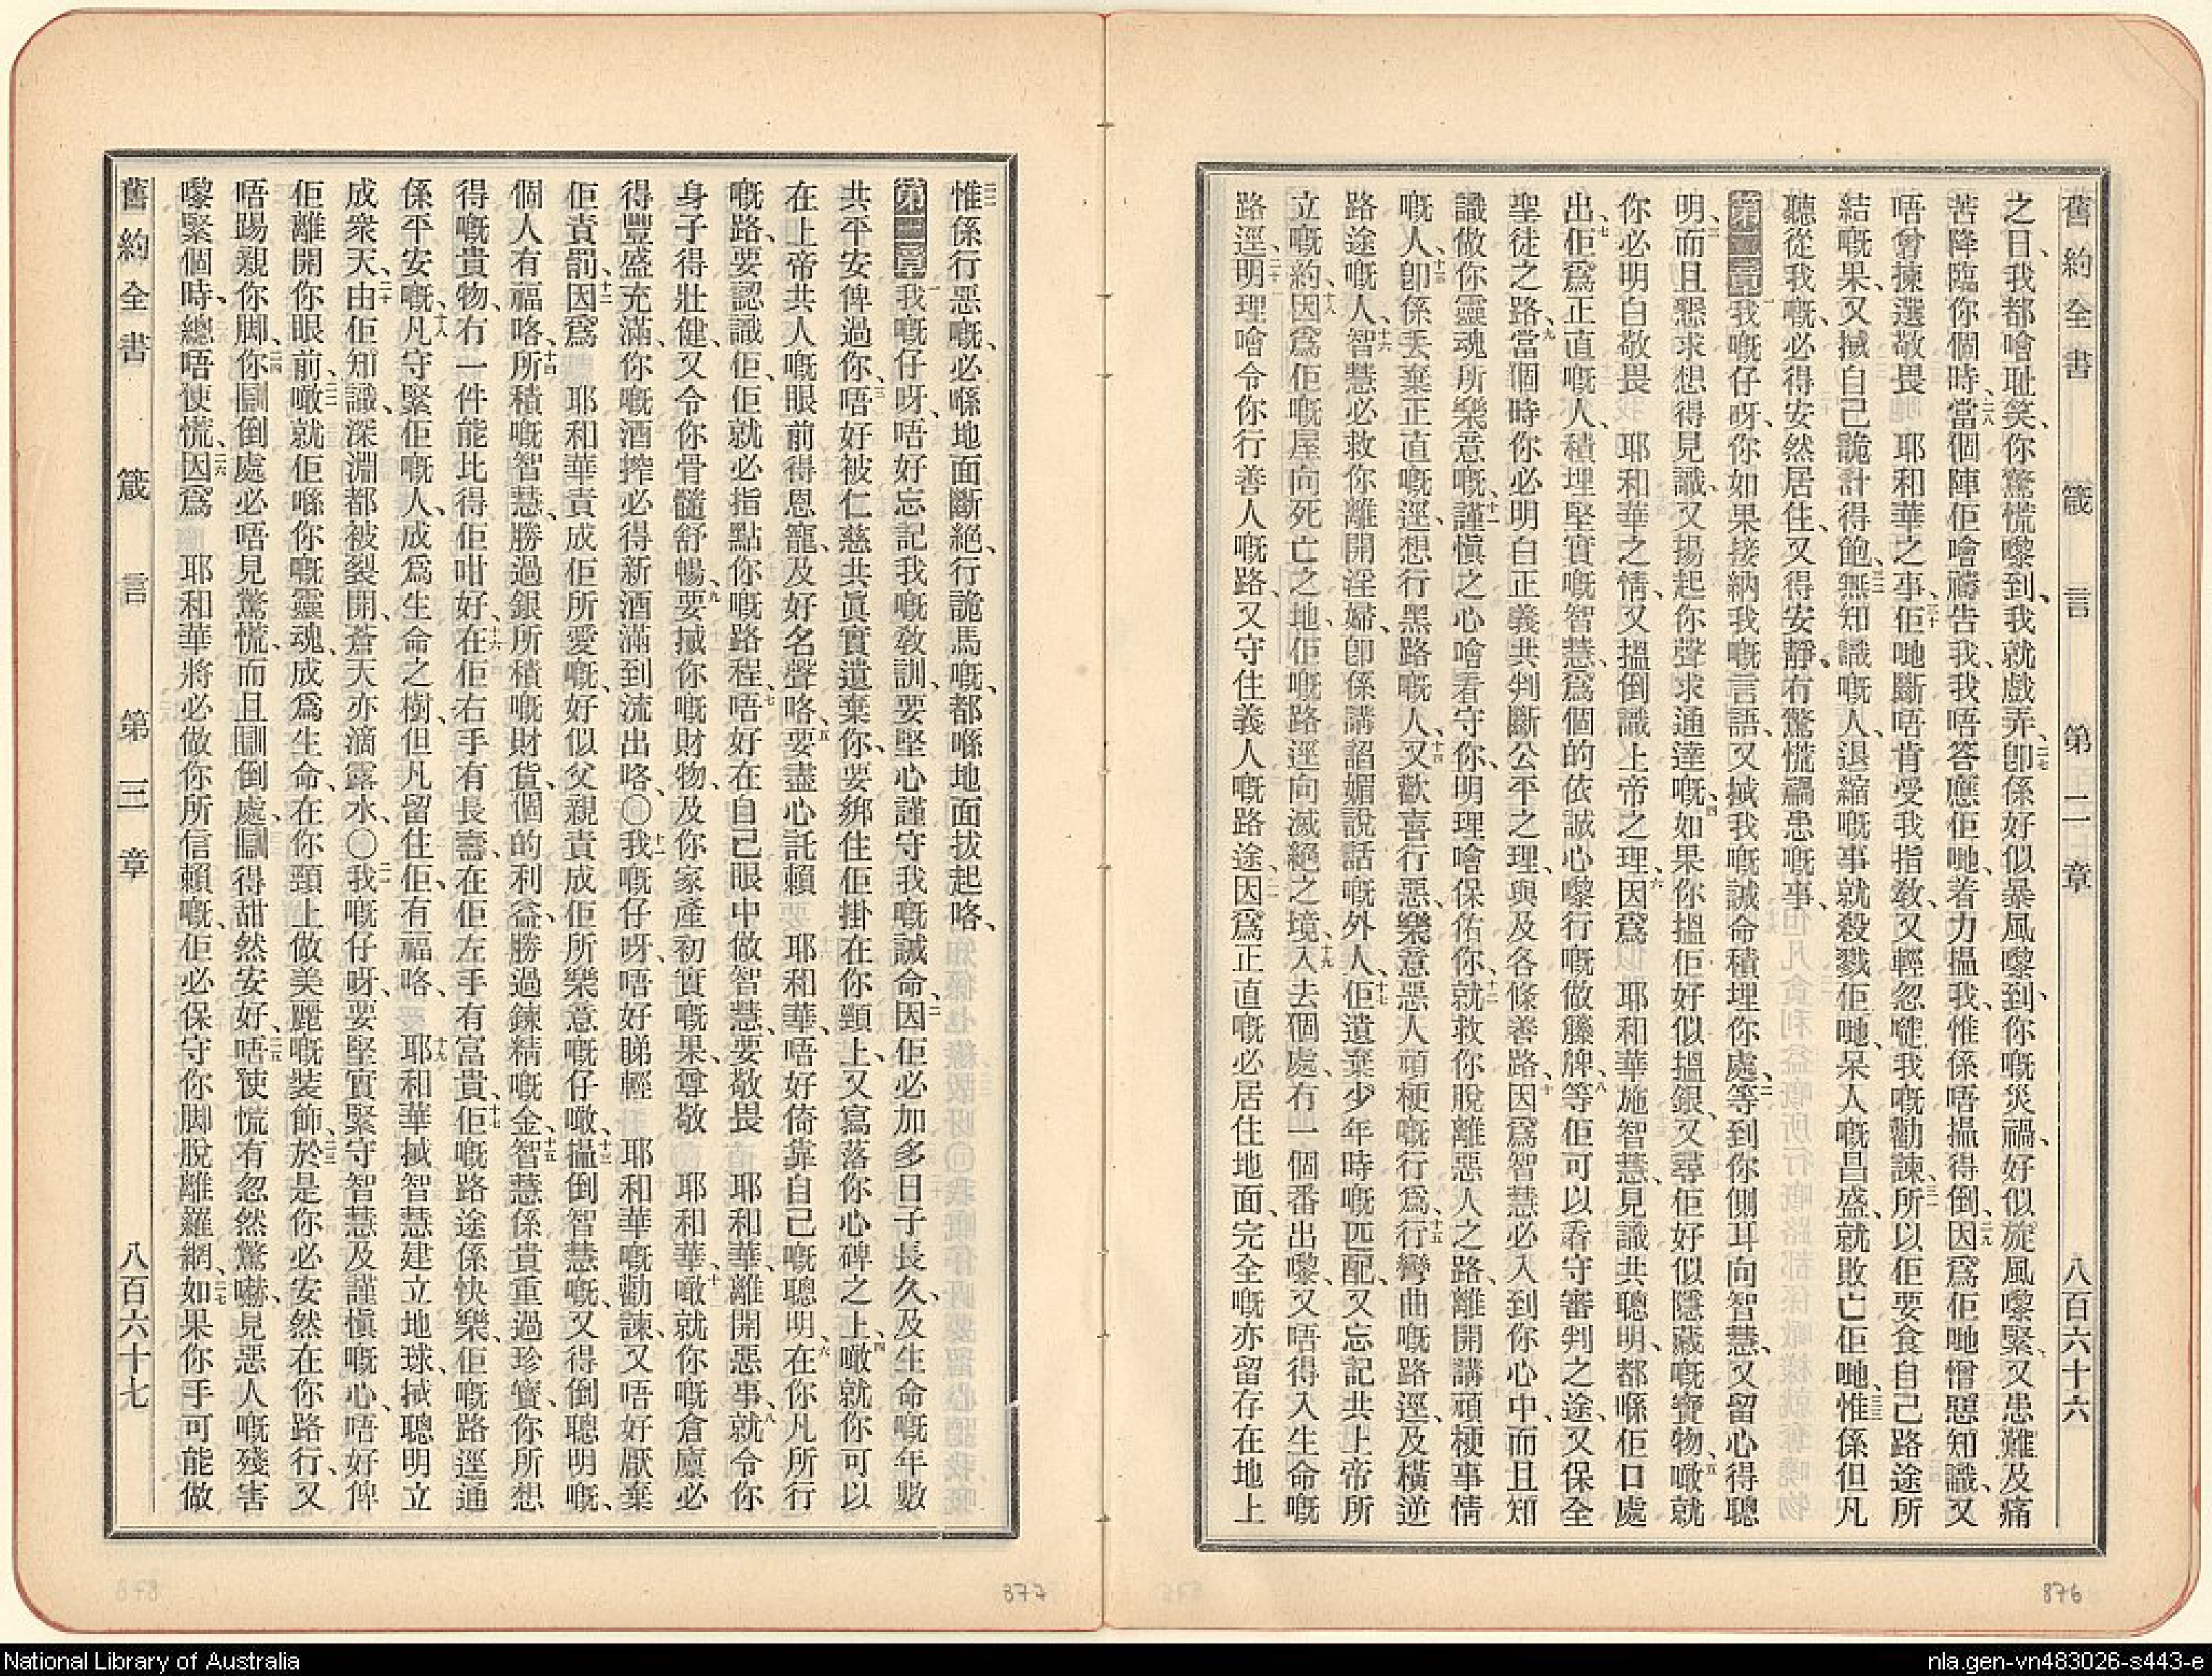 舊約全書 箴言 第二章 八百六十六
之日、我都噲耻笑、你驚慌嚟到、我就戲弄、二七卽係好似暴風嚟到、你嘅災禍、好似旋風嚟緊、又患難及痛
苦降臨你個時、二八當個陣佢噲禱告我、我唔答應佢哋、着力搵我、惟係唔搵得倒、二九因爲佢哋憎惡知識、又
唔曾揀選敬畏 耶和華之事、三十佢哋斷唔肯受我指敎、又輕忽嘥我嘅勸諫、三一所以佢要食自己路途所
結嘅果、又搣自己詭計得飽、三二無知識嘅人、退縮嘅事就殺戮佢哋、呆人嘅昌盛、就敗亡佢哋、三三惟係但凡
聽從我嘅、必得安然居住、又得安靜、冇驚慌禍患嘅事、
第二章一我嘅仔呀、你如果接納我嘅言語、又搣我嘅誡命積埋你處、二等到你側耳向智慧、又留心得聰
明、三而且懇求想得見識、又揚起你聲求通達嘅、四如果你搵佢好似搵銀、又尋佢好似隱藏嘅寶物、五噉就
你必明白敬畏 耶和華之情、又搵倒識上帝之理、六因爲 耶和華施智慧、見識共聰明、都喺佢口處
出、七佢爲正直嘅人、積埋堅實嘅智慧、爲個的依誠心嚟行嘅做籐牌、八等佢可以看守審判之途、又保全
聖徒之路、九當個時你必明白正義共判斷公平之理、與及各條善路、十因爲智慧必入到你心中、而且知
識做你靈魂所樂意嘅、十一謹愼之心噲看守你、明理噲保佑你、十二就救你脫離惡人之路、離開講頑梗事情
嘅人、十三卽係丟棄正直嘅逕、想行黑路嘅人、十四又歡喜行惡、樂意惡人頑梗嘅行爲、十五行彎曲嘅路逕、及橫逆
路途嘅人、十六智慧必救你離開淫婦、卽係講諂媚說話嘅外人、十七佢遺棄少年時嘅匹配、又忘記共上帝所
立嘅約、十八因爲佢嘅屋向死亡之地、佢嘅路逕向滅絕之境、十九入去個處、冇一個番出嚟、又唔得入生命嘅
路逕、二十明理噲令你行善人嘅路、又守住義人嘅路途、二一因爲正直嘅必居住地面、完全嘅亦留存在地上
二二惟係行惡嘅、必喺地面斷絕、行詭馬嘅、都喺地面拔起咯、
第三章一我嘅仔呀、唔好忘記我嘅敎訓、要堅心謹守我嘅誡命、二因佢必加多日子長久、及生命嘅年數
共平安俾過你、三唔好被仁慈共眞實遺棄你、要綁住佢掛在你頸上、又寫落你心碑之上、四噉就你可以
在上帝共人嘅眼前得恩寵、及好名聲咯、五要盡心託賴 耶和華、唔好倚靠自己嘅聰明、六在你凡所行
嘅路、要認識佢、佢就必指點你嘅路程、七唔好在自己眼中做智慧、要敬畏 耶和華、離開惡事、八就令你
身子得壯健、又令你骨髓舒暢、九要搣你嘅財物、及你家產初實嘅果、尊敬 耶和華、十噉就你嘅倉廩必
得豐盛充滿、你嘅酒搾必得新酒滿到流出咯、〇十一我嘅仔呀、唔好睇輕 耶和華嘅勸諫、又唔好厭棄
佢責罰、十二因爲 耶和華責成佢所愛嘅、好似父親責成佢所樂意嘅仔噉、十三搵倒智慧嘅、又得倒聰明嘅、
個人有福咯、十四所積嘅智慧、勝過銀所積嘅財貨、個的利益、勝過鍊精嘅金、十五智慧係貴重過珍寶、你所想
得嘅貴物、冇一件能比得佢咁好、十六在佢右手有長壽、在佢左手有富貴、十七佢嘅路途係快樂、佢嘅路逕通
係平安嘅、十八凡守緊佢嘅人、成爲生命之樹、但凡留住佢、有福咯、十九耶和華搣智慧建立地球、搣聰明立
成衆天、二十由佢知識、深淵都被裂開、蒼天亦滴露水、〇二一我嘅仔呀、要堅實緊守智慧及謹愼嘅心、唔好俾
佢離開你眼前、二二噉就佢喺你嘅靈魂、成爲生命、在你頸上做美麗嘅裝飾、二三於是你必安然在你路行、又
唔踢親你脚、二四你瞓倒處必唔見驚慌、而且瞓倒處、瞓得甜然安好、二五唔使慌有忽然驚嚇、見惡人嘅殘害
嚟緊個時、總唔使慌、二六因爲 耶和華將必做你所信賴嘅、佢必保守你脚脫離羅網、二七如果你手可能做
舊約全書 箴言 第三章 八百六十七
877
876
National Library of Australia
nla.gen-vn483026-s443-e